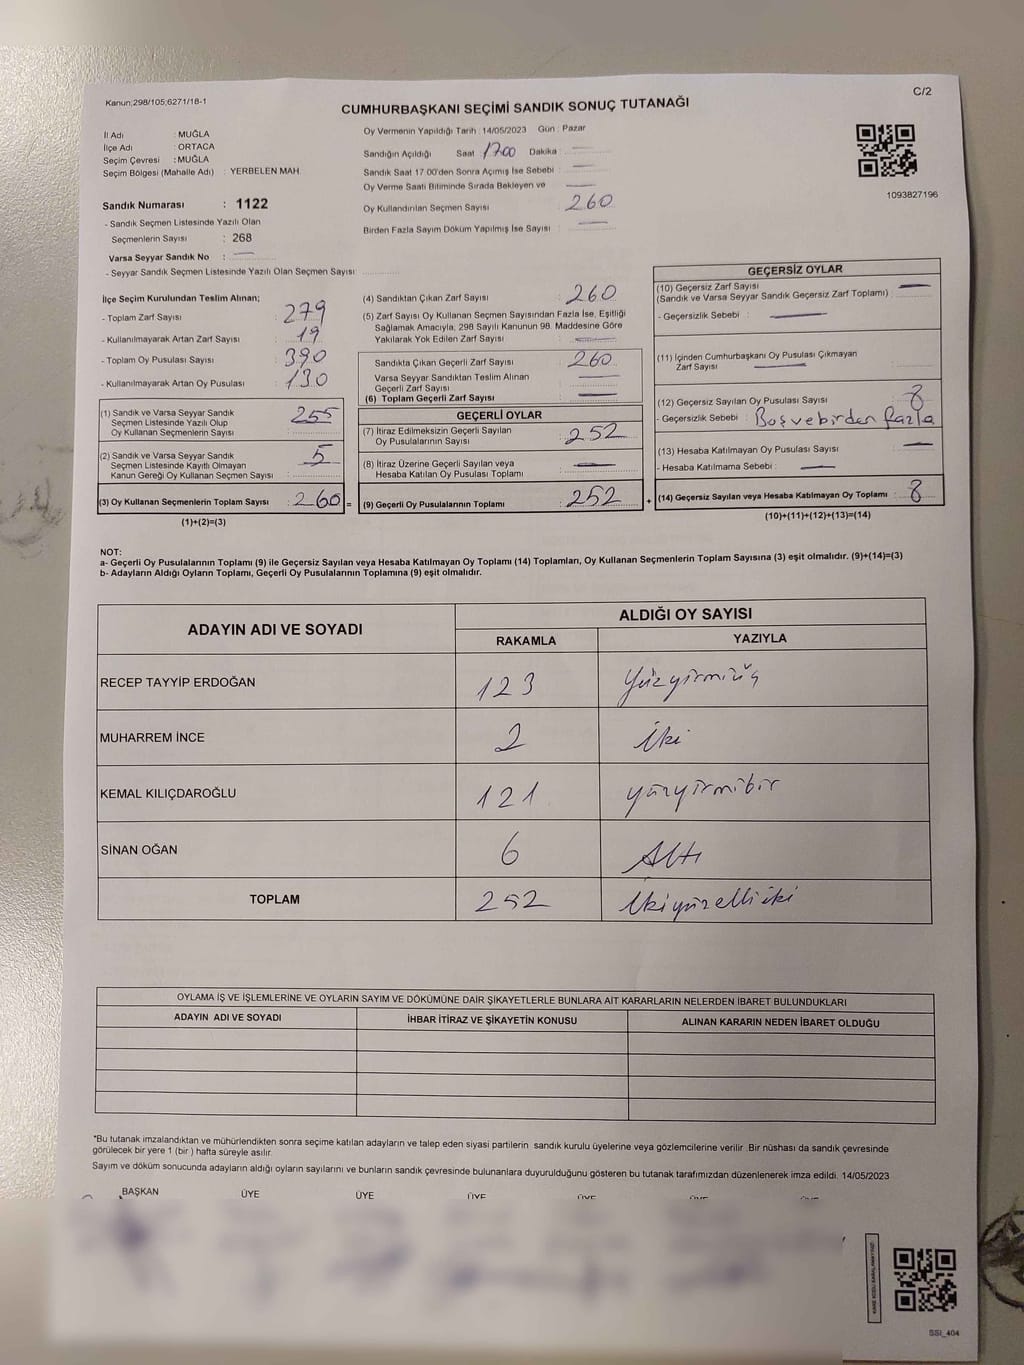 Kanun;298/105;6271/18-1
C/2
CUMHURBAŞKANI SEÇİMİ SANDIK SONUÇ TUTANAĞI
İl Adı : MUĞLA
İlçe Adı : ORTACA
Seçim Çevresi : MUĞLA
Seçim Bölgesi (Mahalle Adı) : YERBELEN MAH
Sandık Numarası : 1122
- Sandık Seçmen Listesinde Yazılı Olan
Seçmenlerin Sayısı : 268
Varsa Seyyar Sandık No : —
- Seyyar Sandık Seçmen Listesinde Yazılı Olan Seçmen Sayısı :
Oy Vermenin Yapıldığı Tarih : 14/05/2023 Gün : Pazar
Sandığın Açıldığı Saat 17.00 Dakika : —
Sandık Saat 17 00'den Sonra Açımış İse Sebebi : —
Oy Verme Saati Bitiminde Sırada Bekleyen ve —
Oy Kullandırılan Seçmen Sayısı : 260
Birden Fazla Sayım Döküm Yapılmış İse Sayısı : —
1093827196
İlçe Seçim Kurulundan Teslim Alınan;
- Toplam Zarf Sayısı : 279
- Kullanılmayarak Artan Zarf Sayısı : 19
- Toplam Oy Pusulası Sayısı : 390
- Kullanılmayarak Artan Oy Pusulası : 130
(1) Sandık ve Varsa Seyyar Sandık
Seçmen Listesinde Yazılı Olup : 255
Oy Kullanan Seçmenlerin Sayısı
(2) Sandık ve Varsa Seyyar Sandık
Seçmen Listesinde Kayıtlı Olmayan : 5
Kanun Gereği Oy Kullanan Seçmen Sayısı
(3) Oy Kullanan Seçmenlerin Toplam Sayısı : 260 =
(1)+(2)=(3)
(4) Sandıktan Çıkan Zarf Sayısı : 260
(5) Zarf Sayısı Oy Kullanan Seçmen Sayısından Fazla İse, Eşitliği
Sağlamak Amacıyla, 298 Sayılı Kanunun 98. Maddesine Göre
Yakılarak Yok Edilen Zarf Sayısı : —
Sandıkta Çıkan Geçerli Zarf Sayısı : 260
Varsa Seyyar Sandıktan Teslim Alınan
Geçerli Zarf Sayısı : —
(6) Toplam Geçerli Zarf Sayısı : —
GEÇERLİ OYLAR
(7) İtiraz Edilmeksizin Geçerli Sayılan
Oy Pusulalarının Sayısı : 252
(8) İtiraz Üzerine Geçerli Sayılan veya
Hesaba Katılan Oy Pusulası Toplamı : —
(9) Geçerli Oy Pusulalarının Toplamı : 252 +
GEÇERSİZ OYLAR
(10) Geçersiz Zarf Sayısı : —
(Sandık ve Varsa Seyyar Sandık Geçersiz Zarf Toplamı)
- Geçersizlik Sebebi : —
(11) İçinden Cumhurbaşkanı Oy Pusulası Çıkmayan
Zarf Sayısı : —
(12) Geçersiz Sayılan Oy Pusulası Sayısı : 8
- Geçersizlik Sebebi : Boş ve birden fazla
(13) Hesaba Katılmayan Oy Pusulası Sayısı : —
- Hesaba Katılmama Sebebi : —
(14) Geçersiz Sayılan veya Hesaba Katılmayan Oy Toplamı : 8
(10)+(11)+(12)+(13)=(14)
NOT:
a- Geçerli Oy Pusulalarının Toplamı (9) ile Geçersiz Sayılan veya Hesaba Katılmayan Oy Toplamı (14) Toplamları, Oy Kullanan Seçmenlerin Toplam Sayısına (3) eşit olmalıdır. (9)+(14)=(3)
b- Adayların Aldığı Oyların Toplamı, Geçerli Oy Pusulalarının Toplamına (9) eşit olmalıdır.
ADAYIN ADI VE SOYADI
ALDIĞI OY SAYISI
RAKAMLA YAZIYLA
RECEP TAYYİP ERDOĞAN 123 Yüzyirmiüç
MUHARREM İNCE 2 İki
KEMAL KILIÇDAROĞLU 121 yüzyirmibir
SİNAN OĞAN 6 Altı
TOPLAM 252 İkiyüzelliiki
OYLAMA İŞ VE İŞLEMLERİNE VE OYLARIN SAYIM VE DÖKÜMÜNE DAİR ŞİKAYETLERLE BUNLARA AİT KARARLARIN NELERDEN İBARET BULUNDUKLARI
ADAYIN ADI VE SOYADI İHBAR İTİRAZ VE ŞİKAYETİN KONUSU ALINAN KARARIN NEDEN İBARET OLDUĞU
*Bu tutanak imzalandıktan ve mühürlendikten sonra seçime katılan adayların ve talep eden siyasi partilerin sandık kurulu üyelerine veya gözlemcilerine verilir. Bir nüshası da sandık çevresinde
görülecek bir yere 1 (bir ) hafta süreyle asılır.
Sayım ve döküm sonucunda adayların aldığı oyların sayılarını ve bunların sandık çevresinde bulunanlara duyurulduğunu gösteren bu tutanak tarafımızdan düzenlenerek imza edildi. 14/05/2023
BAŞKAN ÜYE ÜYE ÜYE ÜYE
SSI_404